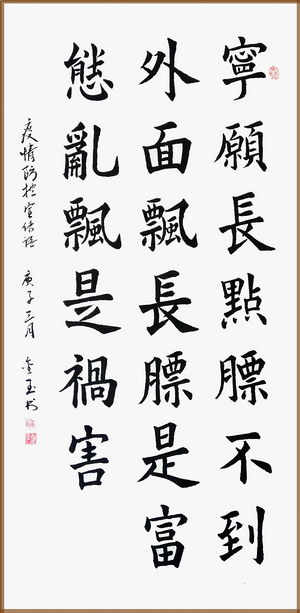 寧願長點膘不到
外面飄長膘是富
態亂飄是禍害
疫情防控宣传语 庚子三月 玉书